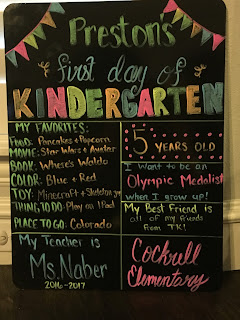 Preston's
first day of
KINDERGARTEN
MY FAVORITES:
FOOD: Pancakes + Popcorn
MOVIE: Star Wars + Avatar
BOOK: Where's Waldo
COLOR: Blue + Red
TOY: Minecraft +
THING TO DO: Play on iPad
PLACE TO GO: Colorado
5 YEARS OLD
I want to be an
Olympic Medalist
when I grow up!
My Best Friend is
all of my friends
from TK!
My Teacher is
Ms. Naber
2016-2017
Cockrill
Elementary